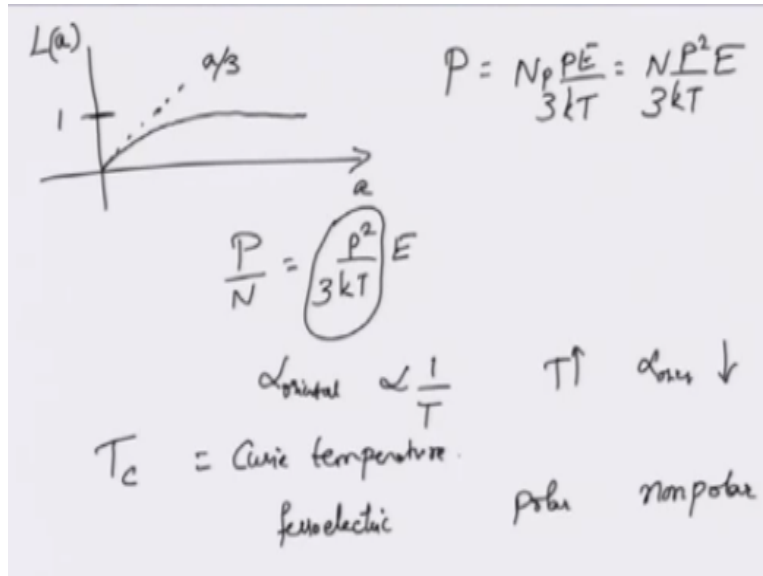 L(a)
a/3
1
a
P = Np pE/3kT = Np²E/3kT
P/N = p²/3kT E
α oriental ∝ 1/T T↑ α orien ↓
Tc = Curie temperature.
ferroelectric polar nonpolar